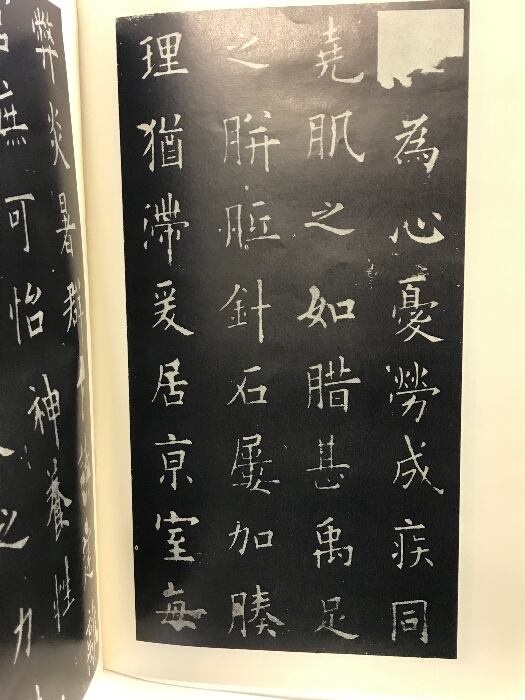 為心憂勞成疾同
堯肌之如腊甚禹足
之胼胝針石屢加腠
理猶滯爰居亰室每
弊炎暑群下請建離
庶可怡神養性
之力